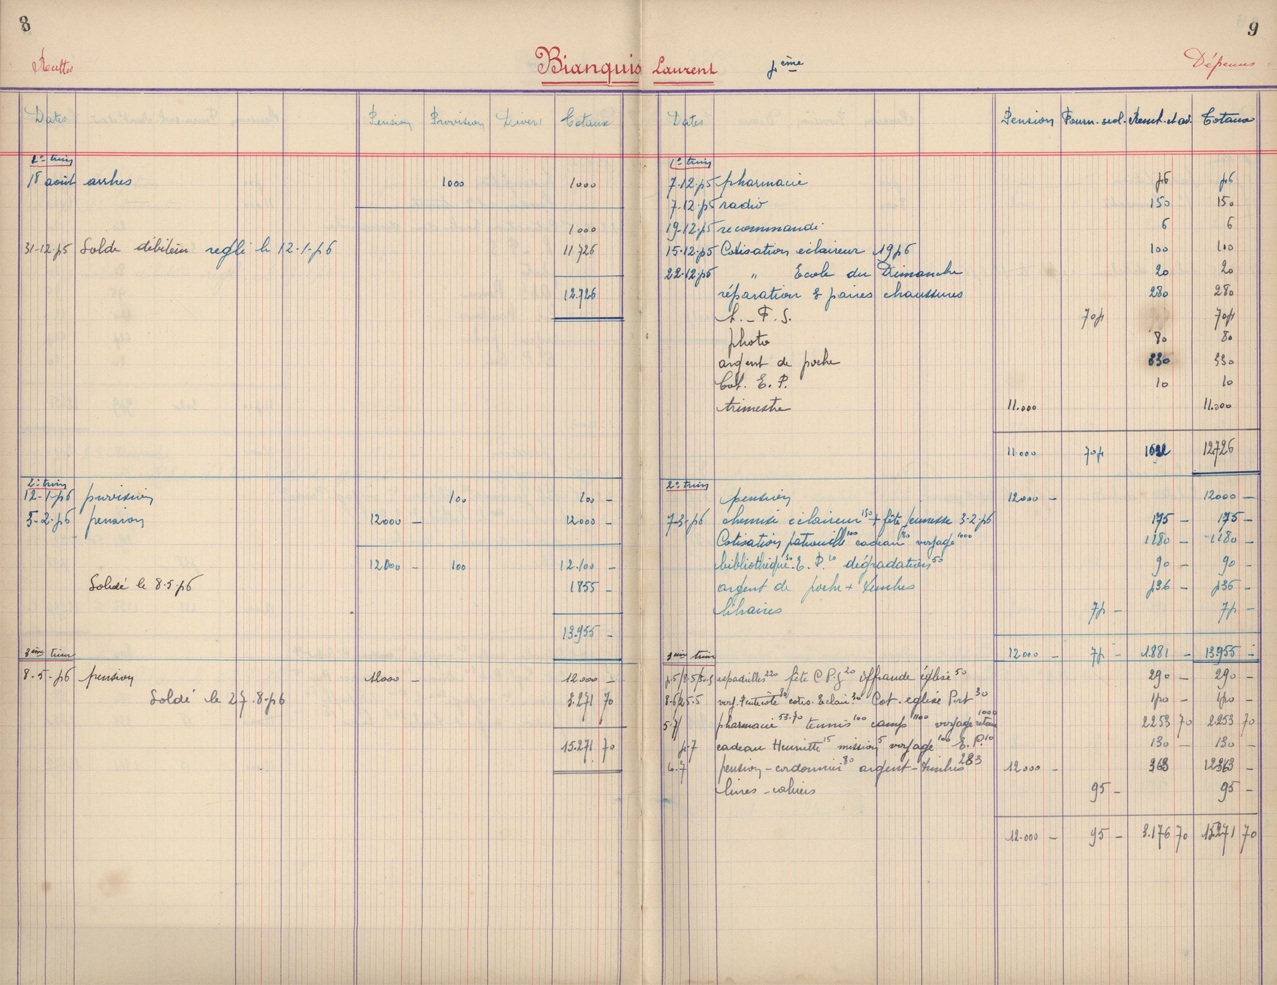 8
Recettes
Bianquis Laurent 5ème
Dépenses
9
Dates Pension Provision Divers Totaux
1er trim
18 août arrhes 1000 1000
1000
31-12-55 Solde débiteur réglé le 12-1-56 11726
12.726
2e trim
12-1-56 provision 100 100 -
3-2-56 pension 12000 - 12000 -
12000 - 100 12.100 -
Soldé le 8.5.56 1855 -
13.955 -
3ème trim
8-5-56 pension 12000 - 12000 -
Soldé le 27.8.56 3.271 70
15.271 70
Dates Pension Fourn. scol. Totaux
1er trim
7.12.55 pharmacie 56 56
7.12.55 radio 150 150
19-12-55 recommandé 6 6
15-12-55 Cotisation éclaireur 1956 100 100
22-12-55 " Ecole du Dimanche 20 20
réparation 2 paires chaussures 280 280
L.-F.S. 704 704
photo 80 80
argent de poche 330 330
Cot. E.P. 10 10
trimestre 11.000 11.000
11.000 704 12726
2e trim
pension 12000 - 12000 -
7-3-56 chemise éclaireur + fête jeunesse 3-2-56 175 - 175 -
Cotisation cadeau voyage 1000 1180 - 1180 -
bibliothèque E.P. 10 dégradations 50 90 - 90 -
argent de poche + timbres 536 - 536 -
libraires
12000 - 1.881 - 13955 -
3ème trim
fête C.P.G 20 offrande église 50 290 - 290 -
Cot. église Prt 30
5-7 pharmacie 53.70 tennis 100 camp 1100 voyage 1000 2253 70 2253 70
5.7 cadeau Henriette 15 mission 5 voyage 100 E.P. 10 130 - 130 -
6.7 pension - cordonnier 80 argent - timbres 283 12.000 - 363 12363 -
livres - cahiers 95 - 95 -
12.000 - 95 - 3.176 70 15271 70